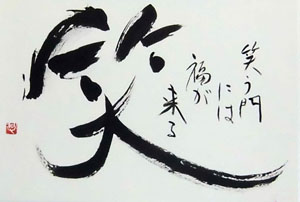 笑
笑う門
には
福が
来る